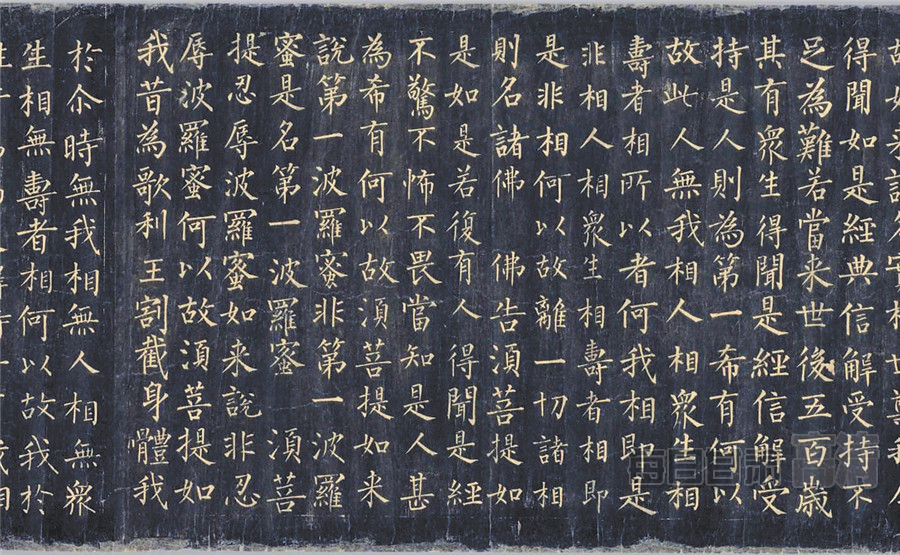 故如来說名實相世尊我今
得聞如是經典信解受持不
足為難若當来世後五百歲
其有衆生得聞是經信解受
持是人則為第一希有何以
故此人無我相人相衆生相
壽者相所以者何我相即是
非相人相衆生相壽者相即
是非相何以故離一切諸相
則名諸佛 佛告須菩提如
是如是若復有人得聞是經
不驚不怖不畏當知是人甚
為希有何以故須菩提如来
說第一波羅蜜非第一波羅
蜜是名第一波羅蜜 須菩
提忍辱波羅蜜如来說非忍
辱波羅蜜何以故須菩提如
我昔為歌利王割截身體我
於尒時無我相無人相無衆
生相無壽者相何以故我於